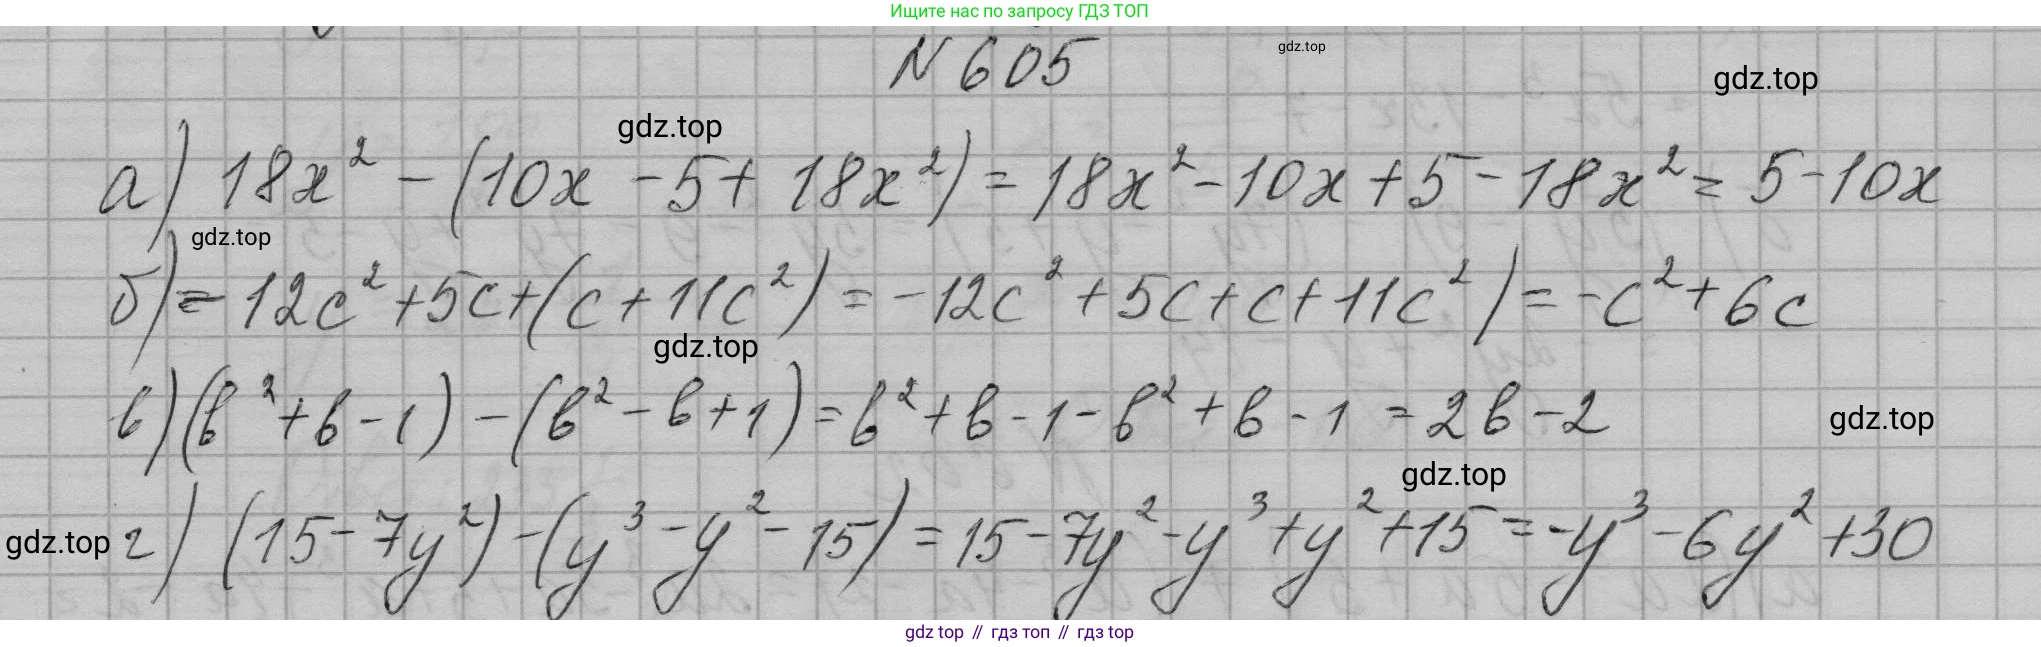 Ищите нас по запросу ГДЗ ТОП
N 605
gdz.top
gdz.top
gdz.top
а) 18x² - (10x - 5 + 18x²) = 18x² - 10x + 5 - 18x² = 5 - 10x
gdz.top
б) = 12c² + 5c + (c + 11c²) = -12c² + 5c + c + 11c²) = -c² + 6c
gdz.top
в) (b² + b - 1) - (b² - b + 1) = b² + b - 1 - b² + b - 1 = 2b - 2
gdz.top
gdz.top
gdz.top
г) (15 - 7y²) - (y³ - y² - 15) = 15 - 7y² - y³ + y² + 15 = -y³ - 6y² + 30
gdz top // гдз топ // gdz top